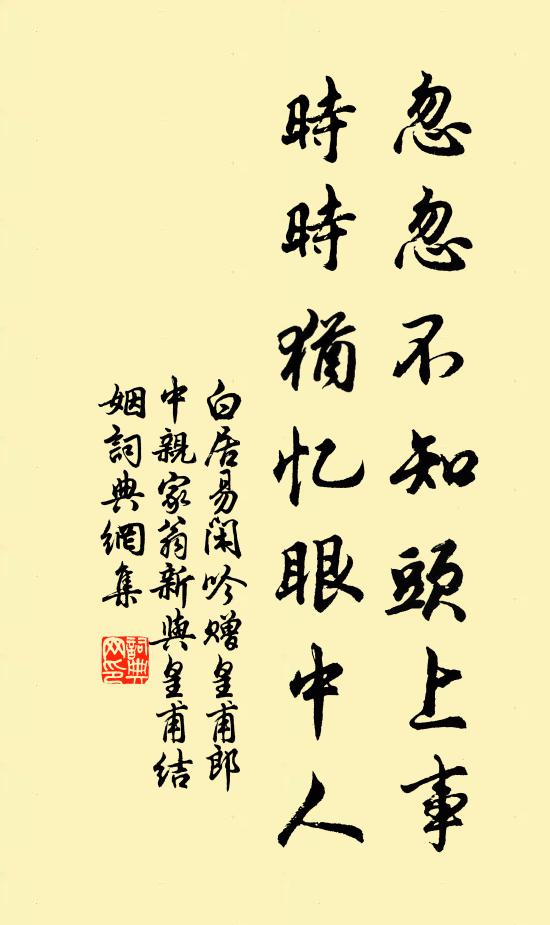 忽忽不知頭上事
時時猶忆眼中人
白居易閑吟赠皇甫郎
中親家翁新與皇甫結
姻詞典網集
詞典网印